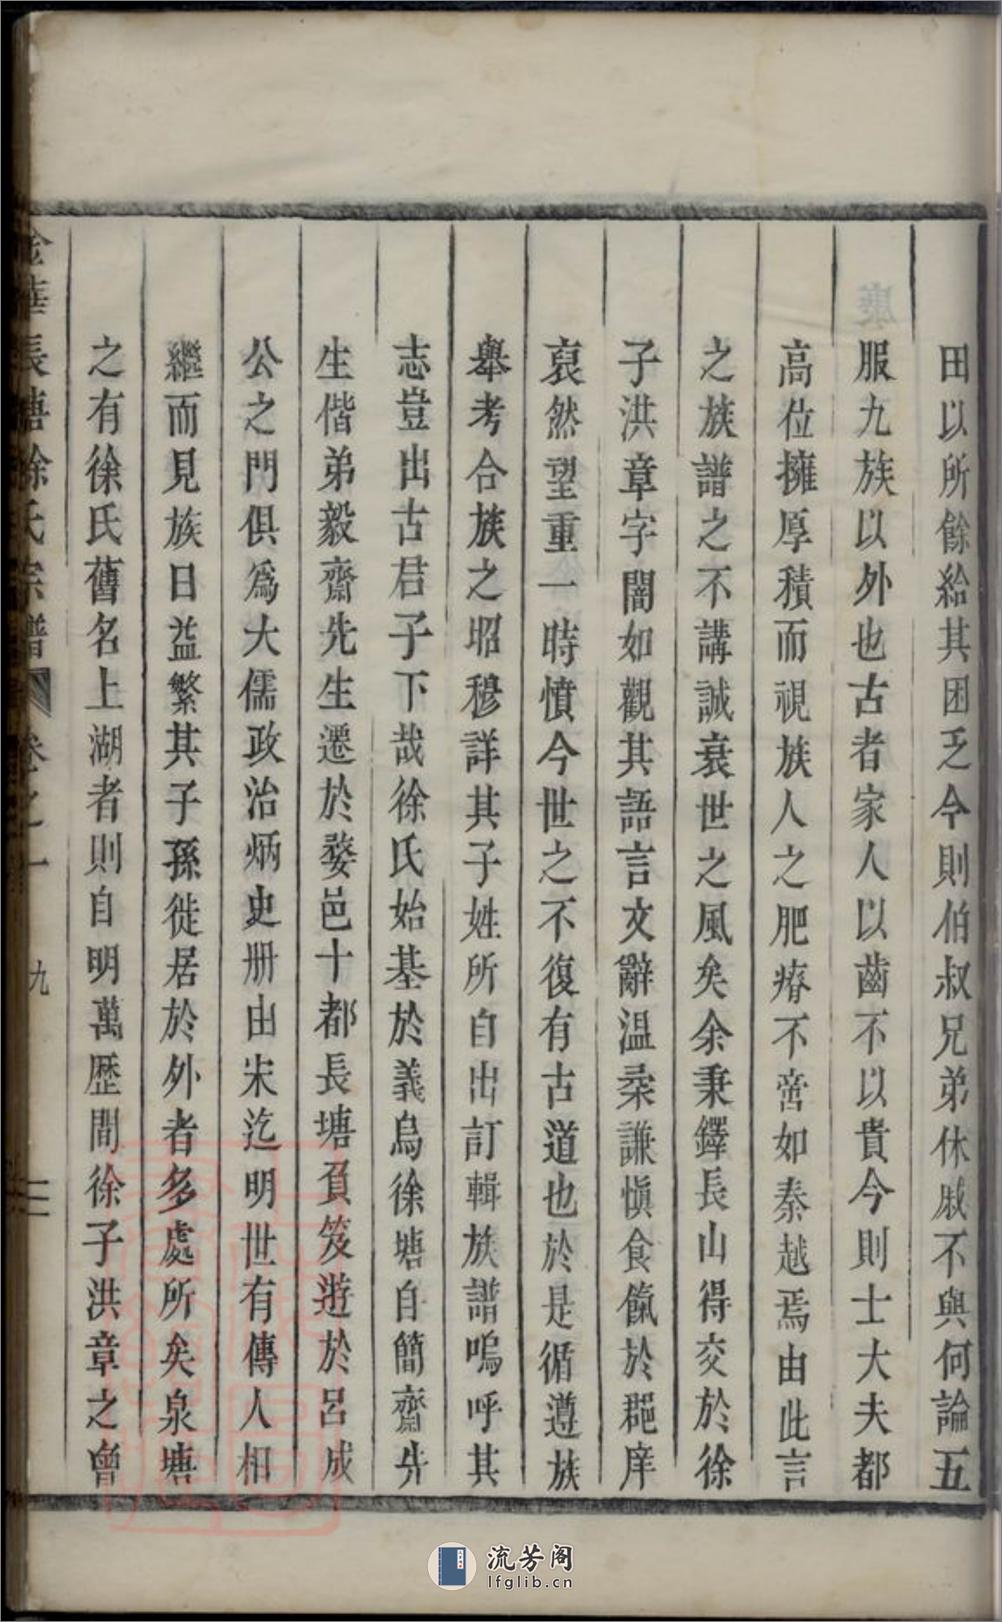 田以所餘給其困乏今則伯叔兄弟休戚不與何論五
服九族以外也古者家人以齒不以貴今則士大夫都
高位擁厚積而視族人之肥瘠不啻如秦越焉由此言
之族譜之不講誠衰世之風矣余秉鐸長山得交於徐
子洪章字闇如觀其語言文辭溫柔謙慎食餼於郡庠
裒然望重一時憤今世之不復有古道也於是循遵族
舉考合族之昭穆詳其子姓所自出訂輯族譜嗚呼其
志豈出古君子下哉徐氏始基於義烏徐塘自簡齋先
生偕弟毅齋先生遷於婺邑十都長塘負笈遊於呂成
公之門俱為大儒政治炳史冊由宋迄明世有傳人相
繼而見族日益繁其子孫徙居於外者多處所矣泉塘
之有徐氏舊名上湖者則自明萬歷間徐子洪章之曾
金華長塘徐氏宗譜 卷之一 九
流芳阁
lfglib.cn